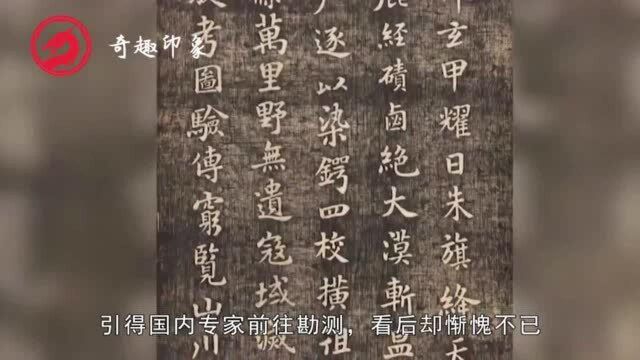 奇趣印象
玄甲耀日朱旗絳天
鹿經磧鹵絕大漠斬
逐以染鍔四校横徂
萬里野無遺寇域滅
考圖驗傳窮覽山川
引得国内专家前往勘测，看后却惭愧不已